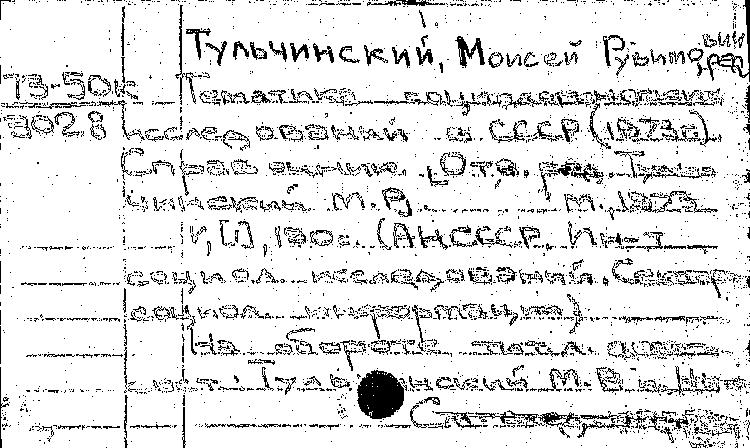 Тульчинский, Моисей Рувимович, ред.
73-50к Тематика социологических
3028 исследований в СССР (1973г).
Справочник. Отв. ред. Туль-
чинский М.Р. М., 1973
V, [1], 190с. (АН СССР. Ин-т
социол. исследований. Сектор
социол. информации)
На обороте тит.л.
сост.: Тульчинский М.Р. и
См.